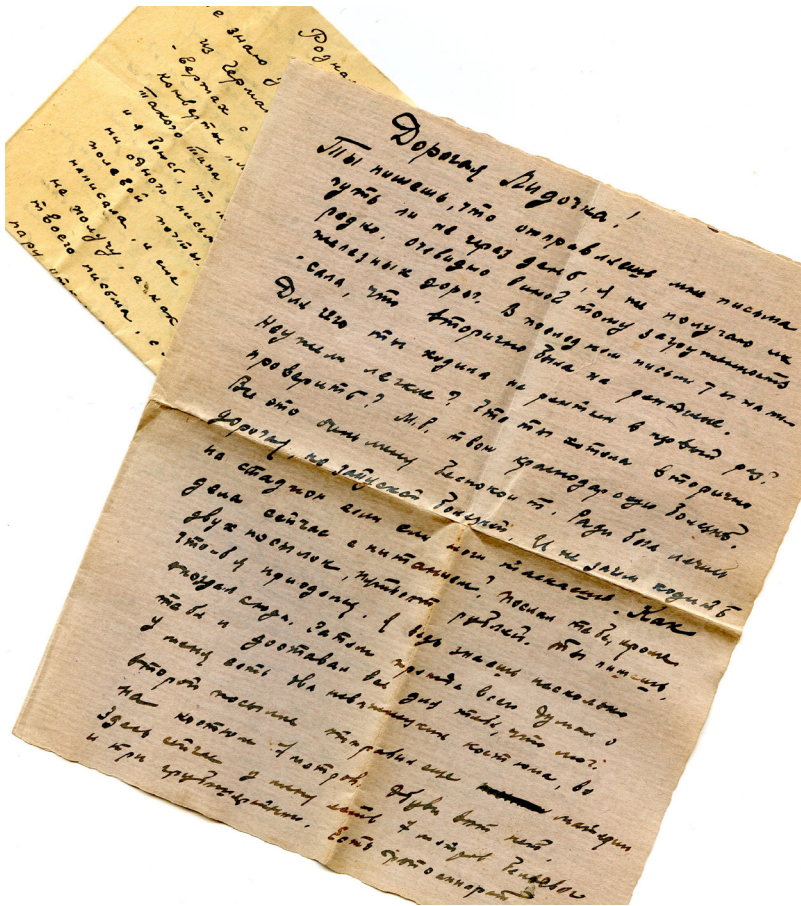 Родная
не знаю
из Герман
вертах с
конверты
такого типа
и я боюсь, что
ни одного письма
полевой почты
написала, и еще
не получу, а как
твоего письма, с
пару
Дорогая Лидочка!
Ты пишешь, что отправляешь мне письма
чуть ли не через день, я не получаю их
редко, очевидно виной тому загруженность
железных дорог. В последнем письме ты напи-
сала, что вторично была на рентгене.
Для чего ты ходила на рентген в первый раз?
Неужели легкие? Что ты хотела вторично
проверить? М.Р. твою краснодарскую болезнь?
Все это очень меня беспокоит. Ради бога лечись
дорогая, не запускай болезней. И не зачем ходить
на стадион если еле ноги таскаешь. Как
дела сейчас с питанием? Послал тебе, кроме
двух посылок, рублей. Ты пишешь,
чтоб я приоделся. Я ведь знаешь насколько
сюда. Затем прежде всего думал о
тебе и доставал все для тебя, что мог.
У меня есть два костюма, во
второй посылке отправил еще материи
на костюм метров. Обуви вот нет,
здесь сейчас у меня есть 7 метров
и три. Есть фотоаппарат